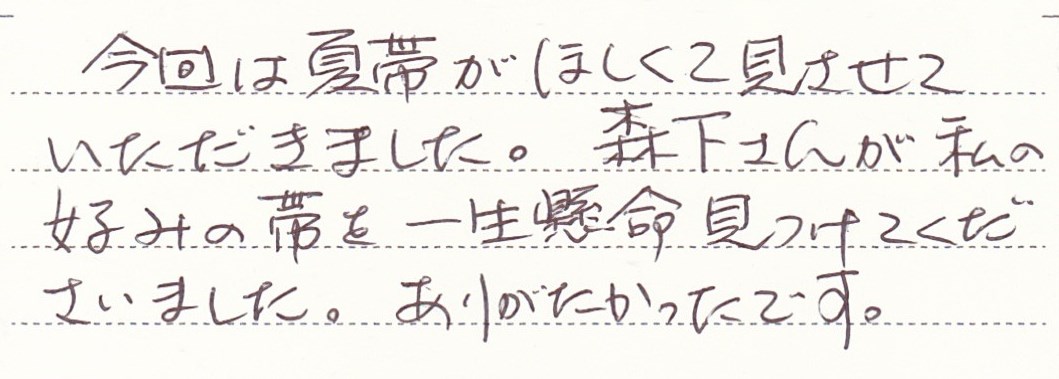 今回は夏帯がほしくて見させて
いただきました。森下さんが私の
好みの帯を一生懸命見つけてくだ
さいました。ありがたかったです。